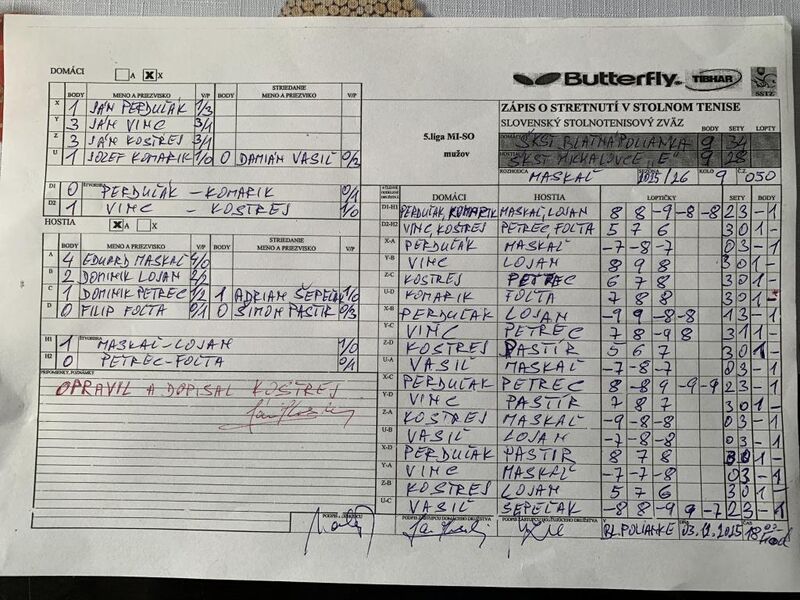 DOMÁCI A X X
BODY MENO A PRIEZVISKO V/P BODY STRIEDANIE MENO A PRIEZVISKO V/P
X 1 JÁN PERDUĽÁK 1/3
Y 3 JÁN VINC 3/1
Z 3 JÁN KOSTREJ 3/1
U 1 JOZEF KOMARIK 1/0 0 DAMIÁN VASIĽ 0/2
D1 0 ŠTVORHRA PERDUĽAK - KOMARIK 0/1
D2 1 VINC - KOSTREJ 1/0
HOSTIA X A X
BODY MENO A PRIEZVISKO V/P BODY STRIEDANIE MENO A PRIEZVISKO V/P
A 4 EDUARD MASKAĽ 4/0
B 2 DOMINIK LOJAN 2/2
C 1 DOMINIK PETREC 1/2 1 ADRIÁN ŠEPEĽAK 1/0
D 0 FILIP FOĽTA 0/1 0 ŠIMON PASTIR 0/3
H1 1 ŠTVORHRA MASKAĽ-LOJAN 1/0
H2 0 PETREC-FOĽTA 0/1
PRIPOMIENKY, POZNÁMKY
OPRAVIL A DOPISAL KOSTREJ
Butterfly TIBHAR SSTZ
5.liga MI-SO
mužov
ZÁPIS O STRETNUTÍ V STOLNOM TENISE
SLOVENSKÝ STOLNOTENISOVÝ ZVÄZ
BODY SETY LOPTY
DOMÁCI ŠKST BLATNÁ POLIANKA 9 34
HOSTIA ŠKST MICHALOVCE "E" 9 28
ROZHODCA MASKAĽ SEZÓNA 2025/26 KOLO 9 Č.Z. 050
DOMÁCI HOSTIA LOPTIČKY SETY BODY
D1-H1 PERDUĽAK, KOMARIK MASKAĽ, LOJAN 8 8 -9 -8 -8 2 3 - 1
D2-H2 VINC, KOSTREJ PETREC, FOĽTA 5 7 6 3 0 1 -
X-A PERDUĽAK MASKAĽ -7 -8 -7 0 3 - 1
Y-B VINC LOJAN 8 9 8 3 0 1 -
Z-C KOSTREJ PETREC 6 7 8 3 0 1 -
U-D KOMARIK FOĽTA 7 8 8 3 0 1 -
X-B PERDUĽAK LOJAN -9 9 -8 -8 1 3 - 1
Y-C VINC PETREC 7 8 -9 8 3 1 1 -
Z-D KOSTREJ PASTÍR 5 6 7 3 0 1 -
U-A VASIĽ MASKAĽ -7 -8 -7 0 3 - 1
X-C PERDUĽAK PETREC 8 -8 9 -9 -9 2 3 - 1
Y-D VINC PASTÍR 7 8 7 3 0 1 -
Z-A KOSTREJ MASKAĽ -9 -8 -8 0 3 - 1
U-B VASIĽ LOJAN -7 -8 -8 0 3 - 1
X-D PERDUĽAK PASTÍR 8 7 8 3 0 1 -
Y-A VINC MASKAĽ -7 -7 -8 0 3 - 1
Z-B KOSTREJ LOJAN 5 7 6 3 0 1 -
U-C VASIĽ ŠEPEĽAK -8 8 -9 9 -7 2 3 - 1
PODPIS ZÁSTUPCU DOMÁCEHO DRUŽSTVA PODPIS ZÁSTUPCU HOSŤUJÚCEHO DRUŽSTVA V BL. POLIANKE DŇA 03.12.2025 ČAS